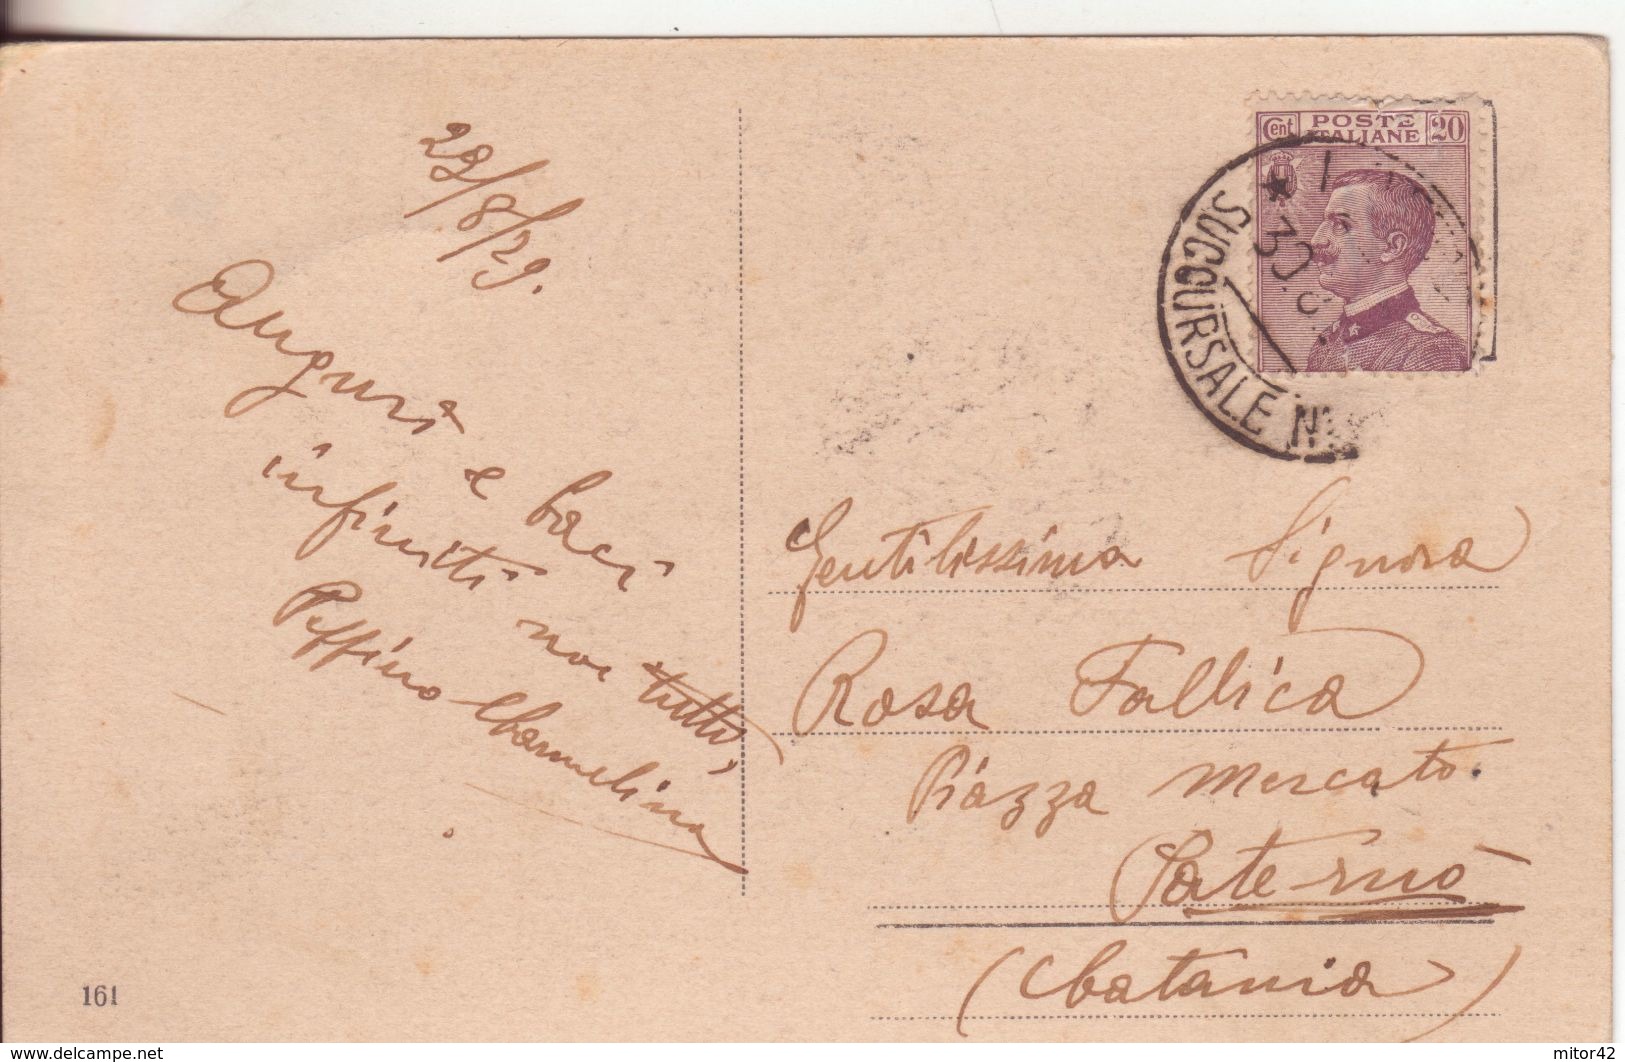 29/8/29.
Auguri e baci
infiniti noi tutti,
Peppino Carmelina
161
Cent POSTE ITALIANE 20
30. 8
SUCCURSALE N
Gentilissima Signora
Rosa Fallica
Piazza Mercato.
Paternò
(Catania)
www.delcampe.net
mitor42